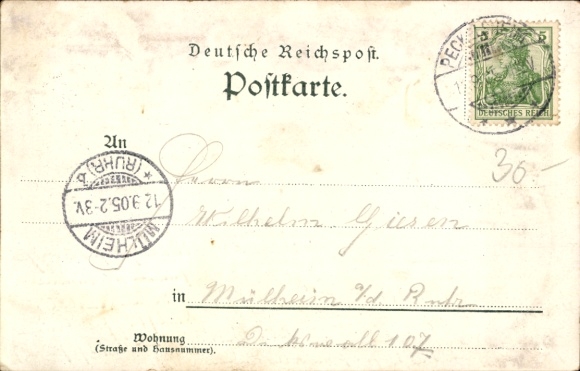 Deutsche Reichspost.
Postkarte.
5 5
DEUTSCHES REICH
PECK
An
Herrn
30-
MÜLHEIM
12.9.05.2-3V.
* (RUHR) b
Wilhelm Giesen
in Mülheim a/d. Ruhr
Wohnung
(Straße und Hausnummer).
107